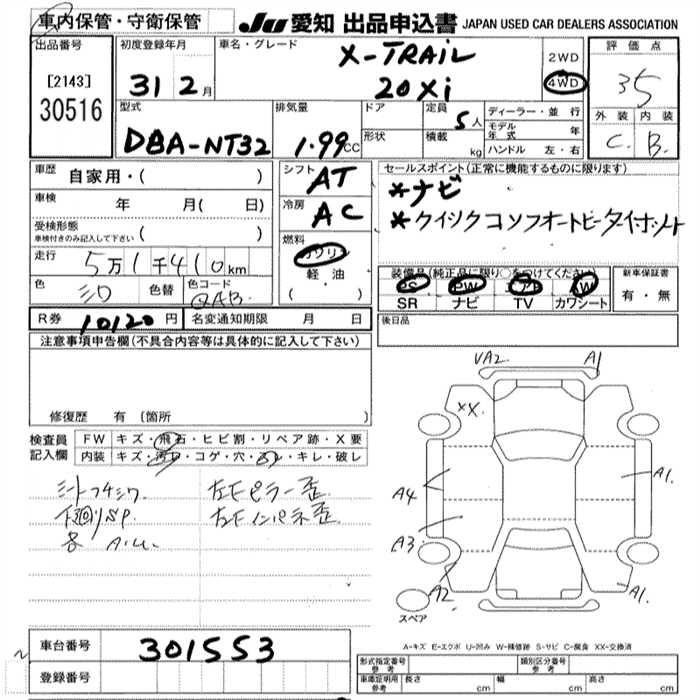 車内保管・守衛保管
JU 愛知 出品申込書 JAPAN USED CAR DEALERS ASSOCIATION
出品番号
[2143]
30516
初度登録年月
31 2月
車名・グレード
X-TRAIL
20Xi
2WD
4WD
評価点
35
外装 内装
C. B.
型式
DBA-NT32
排気量
1.99cc
ドア
形状
定員 5人
積載 kg
ディーラー・並行
モデル年式 年
ハンドル 左・右
車歴 自家用・( )
車検 年 月( 日)
受検形態
車検付きのみ記入して下さい ( )
走行 5万1千410km
色 シロ 色替 色コード QAB
シフト AT
冷房 AC
燃料
ガソリン
軽油
( )
セールスポイント(正常に機能するものに限ります)
*ナビ
装備品(純正品に限り○をつけてください)
PS PW エアB AW
SR ナビ TV カワシート
新車保証書
有・無
R券 10120円 名変通知期限 月 日
後日品
注意事項申告欄(不具合内容等は具体的に記入して下さい)
修復歴 有 〔箇所
検査員記入欄
FW キズ・飛石・ヒビ割・リペア跡・X要
内装 キズ・汚レ・コゲ・穴・スレ・キレ・破レ
左Cピラー歪
VA2 A1
XX
A4 A1
A3
A2 A1
スペア
A-キズ E-エクボ U-凹み W-補修跡 S-サビ C-腐食 XX-交換済
車台番号 301553
登録番号
型式指定番号 参考
類別区分番号 参考
車庫証明用 参考 長さ cm 幅 cm 高さ cm